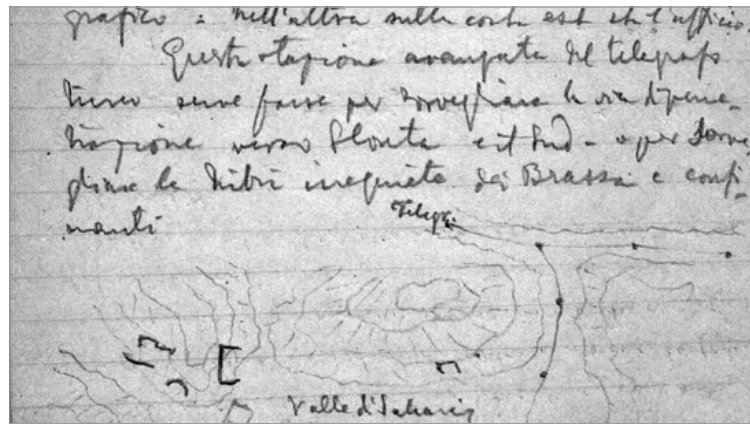 grafico : nell'altra sulla costa est sta l'ufficio.
Questa stazione avanzata del telegrafo
turco serve forse per sorvegliare la via di pene-
trazione verso Slonta e il Sud - o per sorve
gliare le tribù inquiete dei Brassa e confi-
nanti
Telegr.
Valle di